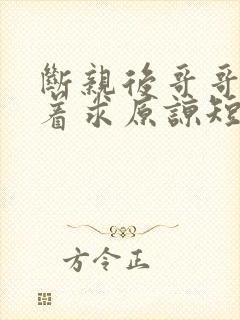 斷親後哥哥
着求原諒短
方令正